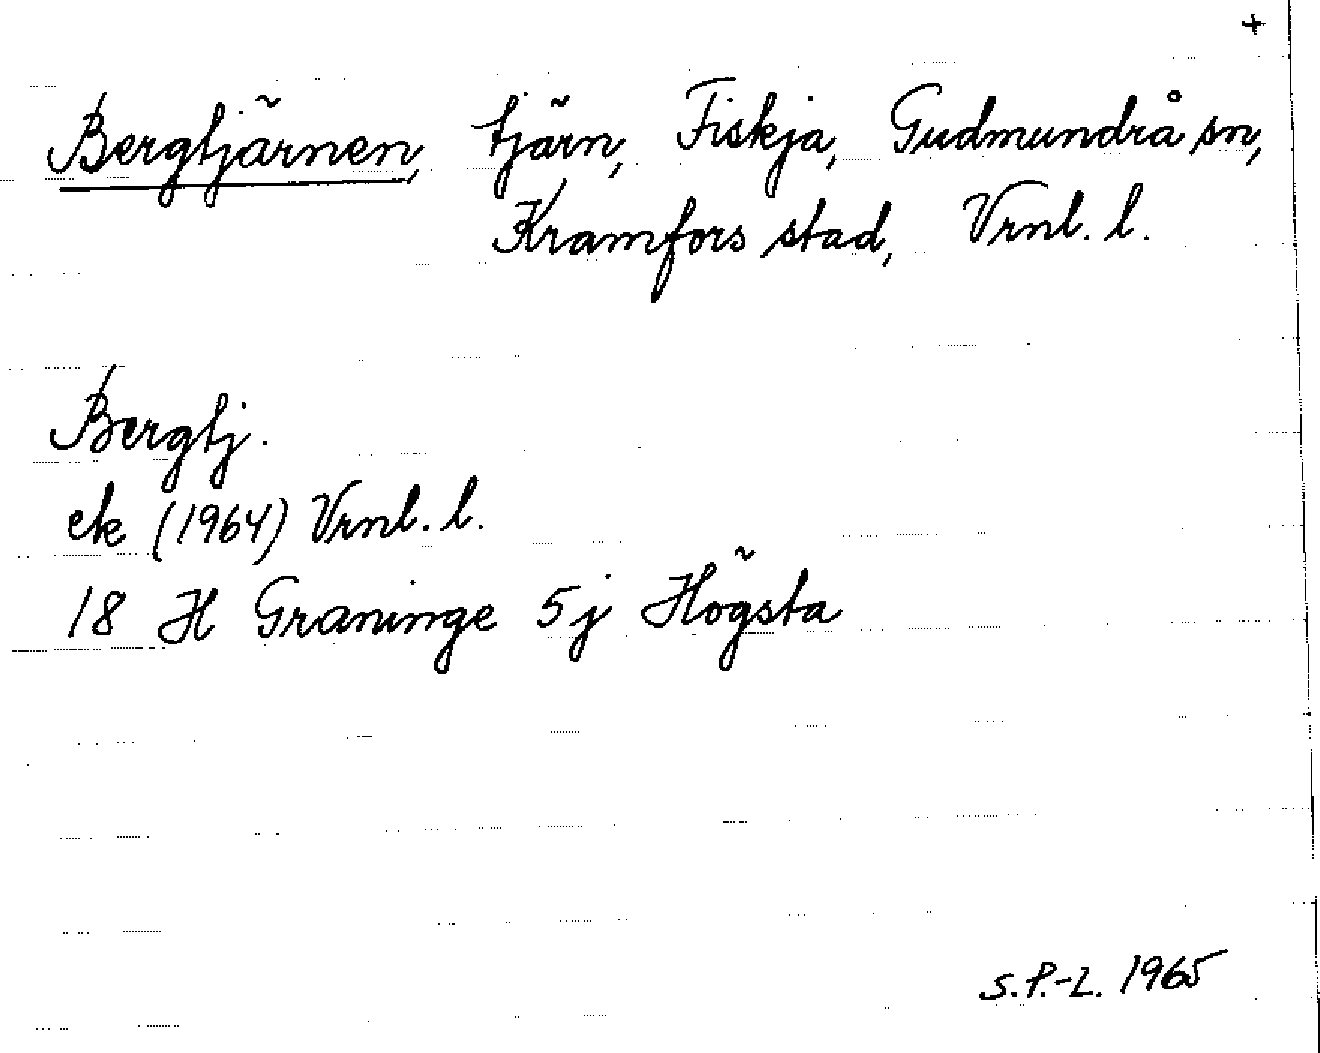 +
Bergtjärnen, tjärn, Fiskja, Gudmundrå sn,
Kramfors stad, Vrnl. l.
Bergtj.
ek (1964) Vrnl. l.
18 H Graninge 5j Högsta
S.P.-L. 1965